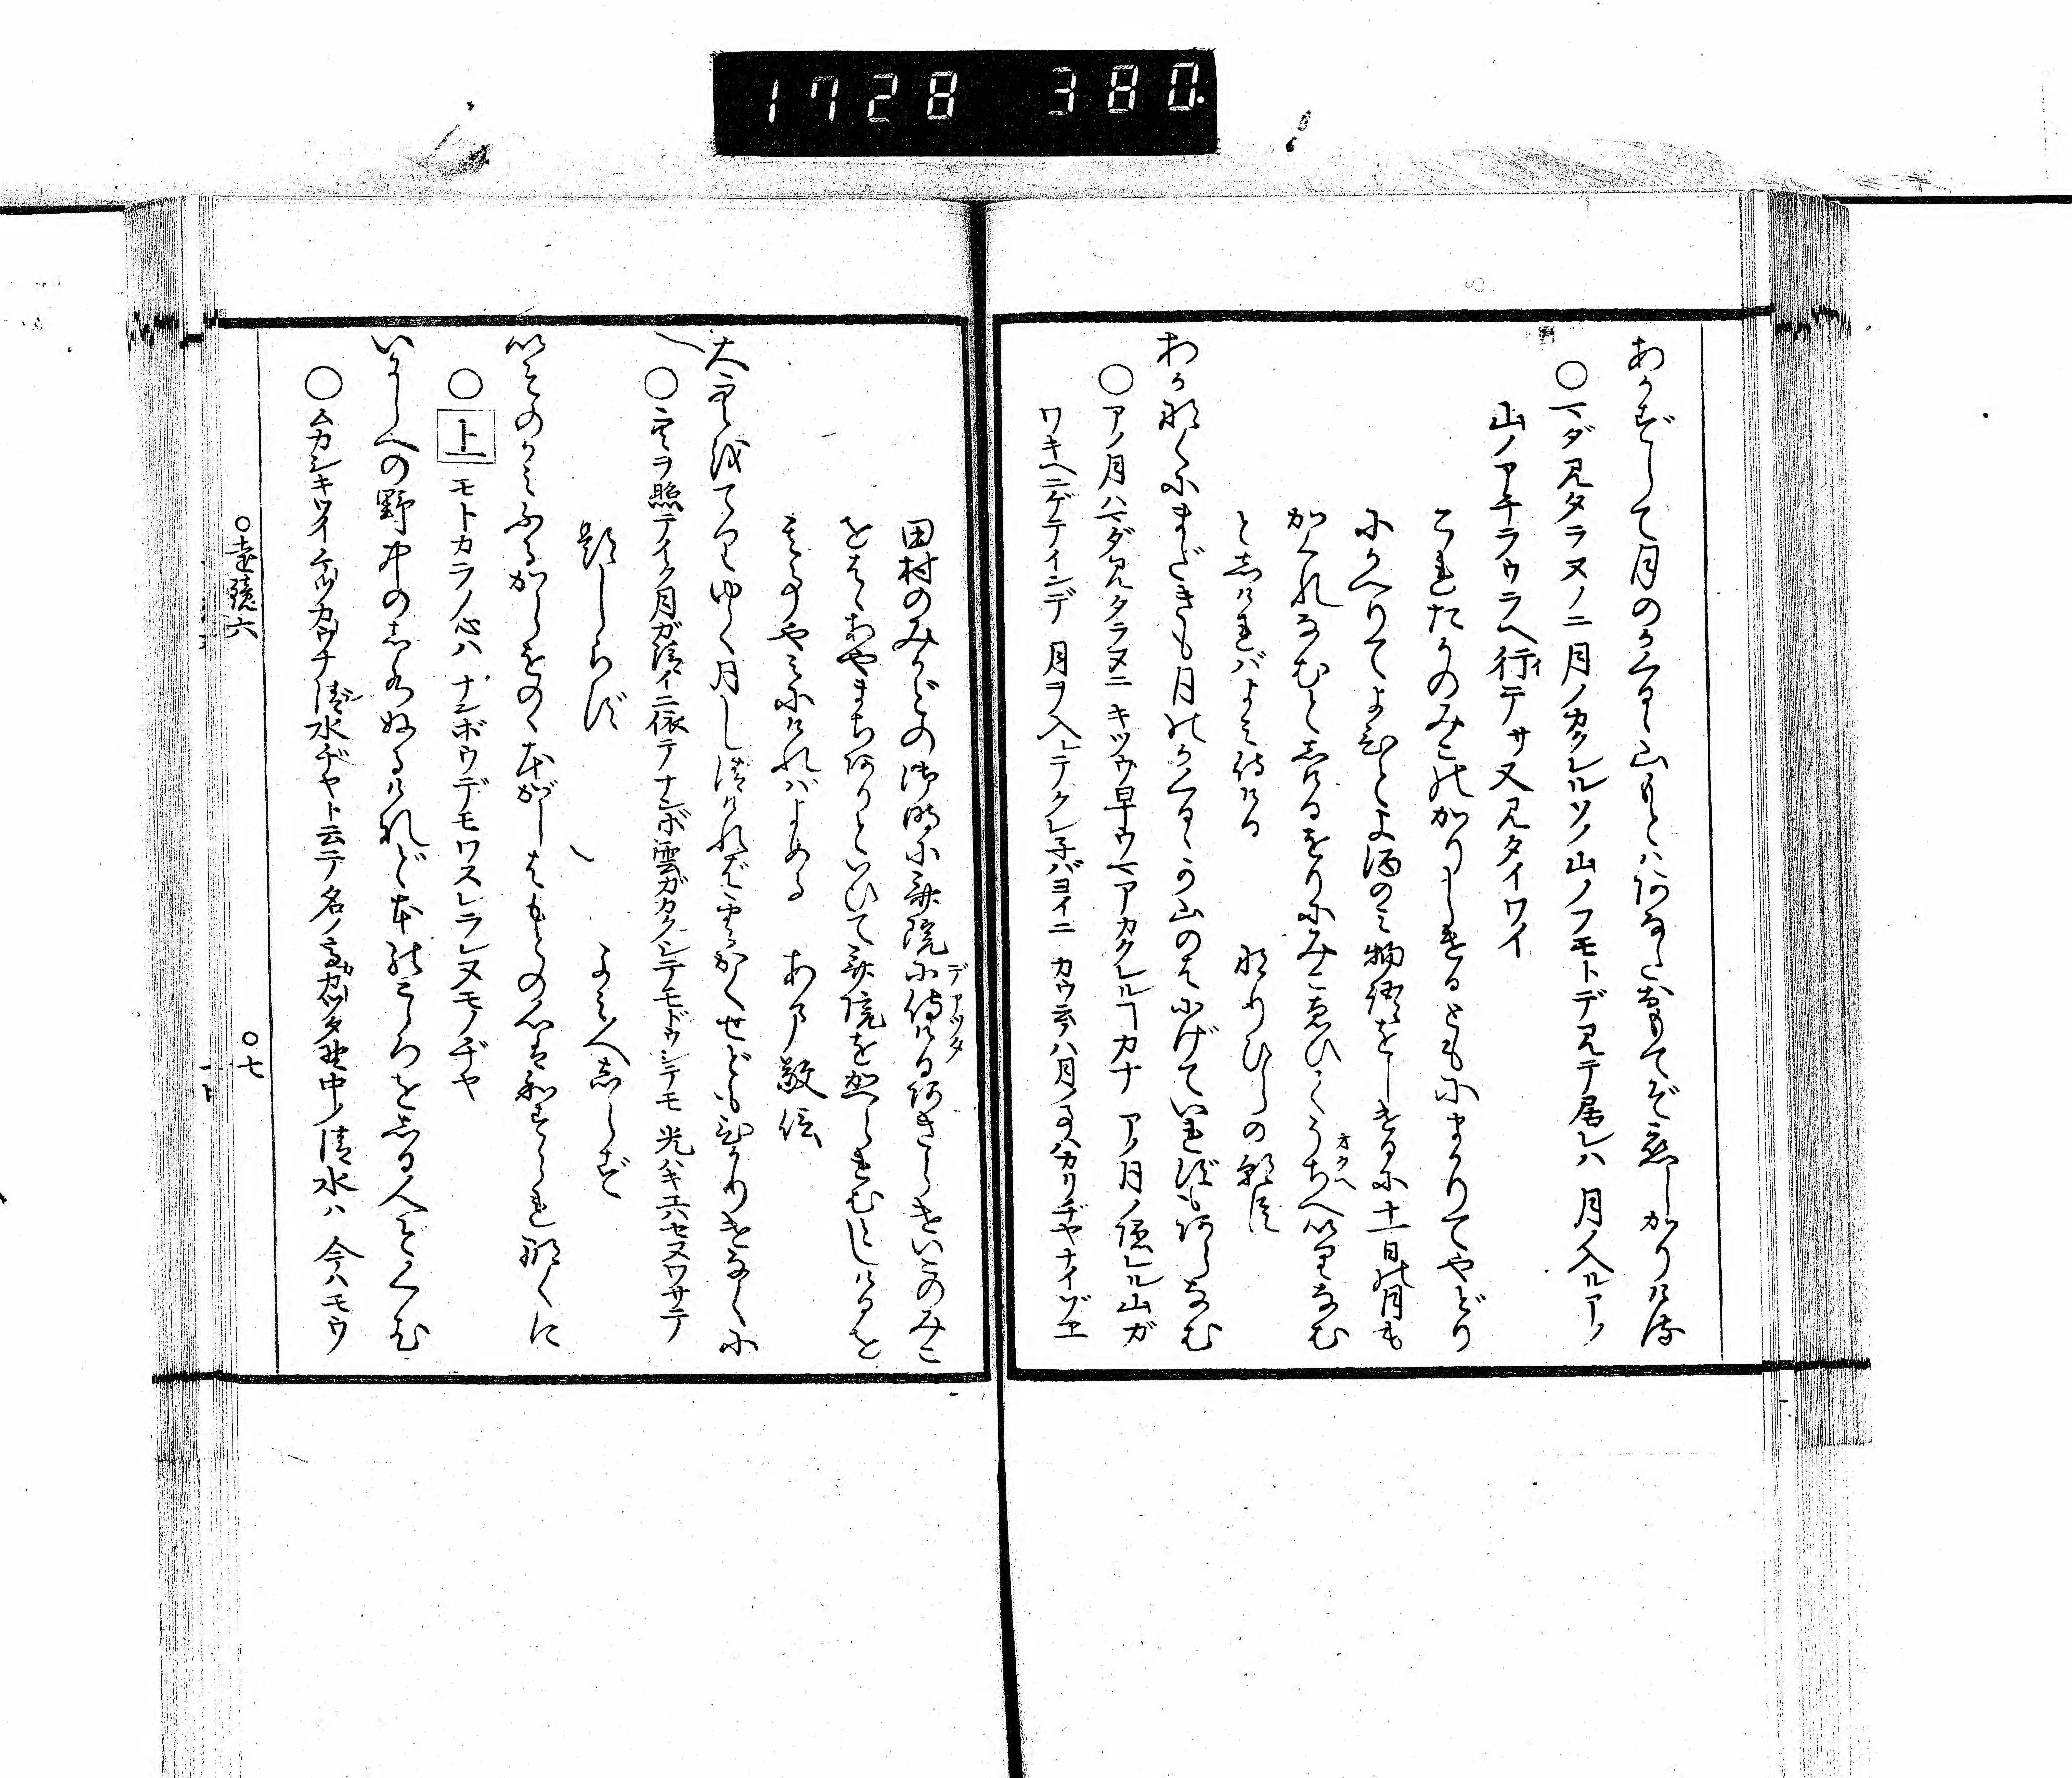 1728 380
あかずして月のかくるゝ山もとはあなたおもてぞ恋しかりける
○マダ見タラヌノニ月ノカクレルソノ山ノフモトデ見テ居レハ月ノ入ルアノ
山ノアチラウラヘ行テサ又見タイワイ
これたかのみこのかりしけるともにまかりてやどり
にかへりてよひとよ酒のみ物語をしけるに十一日の月も
かくれなむとしけるをりにみこゑひてうちへいりなむ
としければよみ侍ける　なりひらの朝臣
あかなくにまだきも月のかくるゝか山のはにげていれずもあらなむ
○アノ月ハマダ見タラヌニキツウ早ウマアカクレルヿカナアノ月ノ隠レル山ガ
ワキヘニゲテインデ月ヲ入レテクレ子バヨイニカウ云ノハ月ノ事ハカリヂヤナイゾヱ
田村のみかどの御時に斎院に侍けるあきらけいこのみこ
をはゝあやまちありといひて斎院をかへられむとしけるを
其事やみにければよめる　あま敬信
大空をてりゆく月し清ければ雲かくせどもひかりけなくに
○空ヲ照テイク月ガ清イニ依テナンボ雲ガカクシテモドウシテモ光ハキエハセヌワサテ
題しらず　よみ人しらず
いそのかみふるからをのゝ本がしはもとの心はわすられなくに
○上モトカラノ心ハナンボウデモワスラレヌモノヂヤ
いにしへの野中のしみづぬるけれど本の心をしる人ぞくむ
○ムカシキツイケツカウナ清水ヂヤト云テ名ノ高カツタ野中ノ清水ハ今ハモウ
○遠鏡六　○七